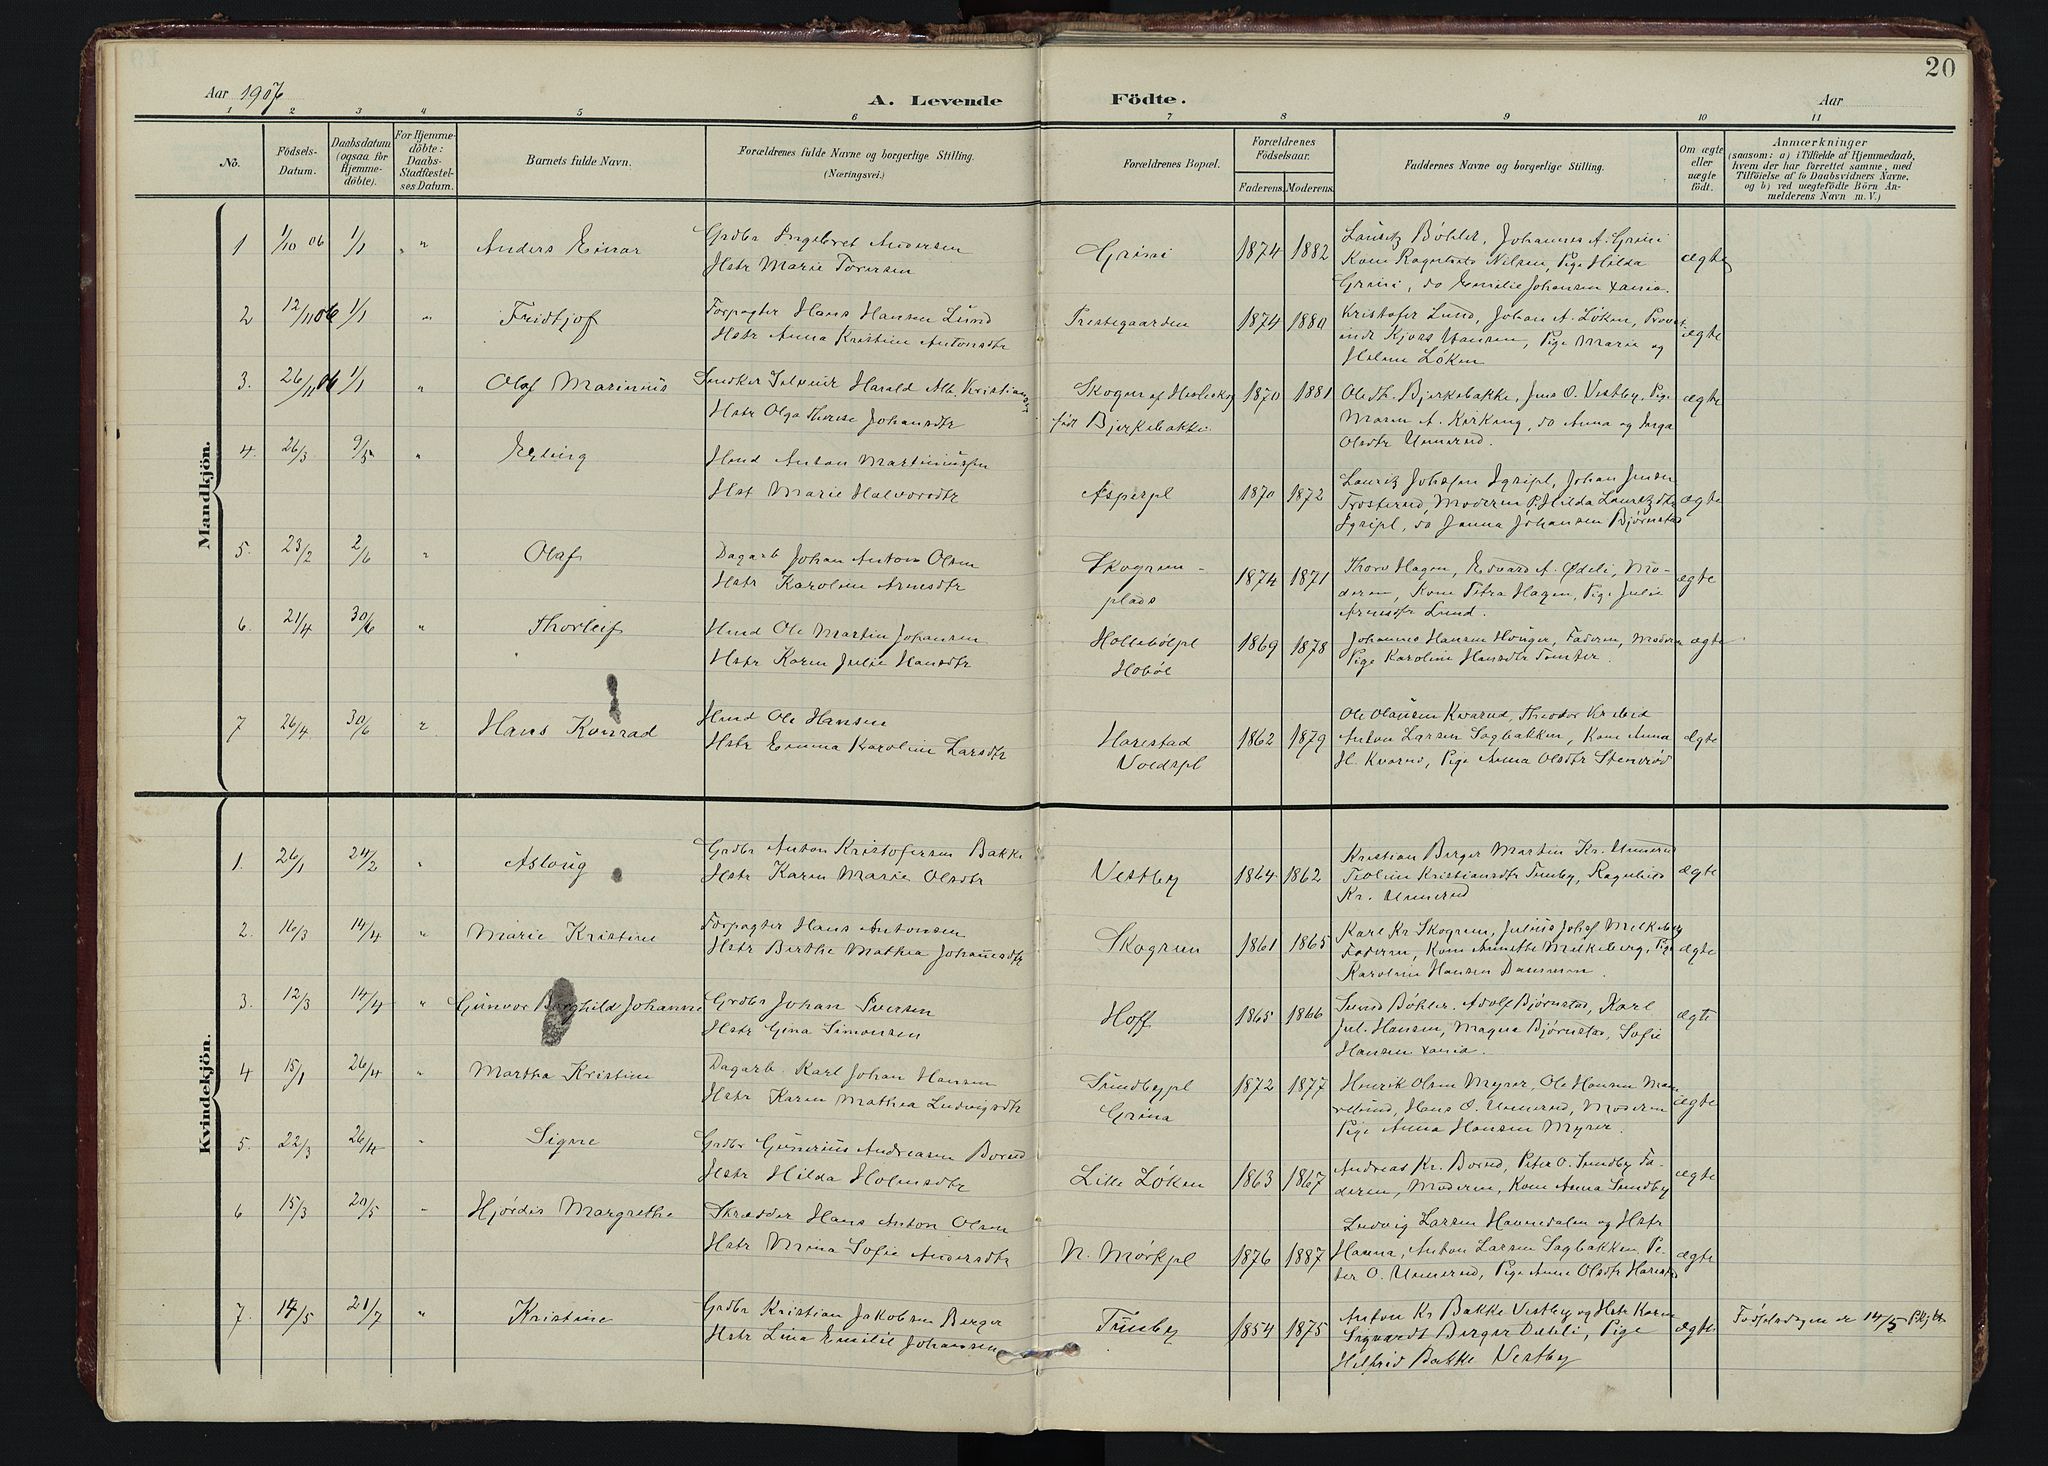 20
Aar 1907
A. Levende Födte.
Aar
1 2 3 4 5 6 7 8 9 10 11
No.
Födsels-Datum.
Daabsdatum (ogsaa for Hjemmedöbte).
For Hjemmedöbte: Daabs-Stadfæstelses Datum.
Barnets fulde Navn.
Forældrenes fulde Navne og borgerlige Stilling.
(Næringsvei.)
Forældrenes Bopæl.
Forældrenes Födselsaar.
Faderens. Moderens.
Faddernes Navne og borgerlige Stilling.
Om ægte eller uægte födt.
Anmærkninger
(saasom: a) i Tilfælde af Hjemmedaab, hvem der har forrettet samme, med Tilföielse af to Daabsvidners Navne, og b) ved uægtefödte Börn Anmelderens Navn m. V.)
Mandkjön.
1 1/10 06 1/1 " " Anders Einar
Grdbr Ingebret Andersen
Hstr Marie Toversen
Grini 1874 1882
Bøhler, Johannes A. Grini
Kone Nilsen, Pige Hilda
Grini, do Emilie Johansen Xania.
ægte
2 12/11 06 1/1 " Fridtjof
Forpagter Hans Hansen Lund
Hstr Anna Kristine Antonsdtr
Prestegaarden 1874 1880
Kristofer Lund, Johan A. Løken,
Hansen, Pige Marie og
Helene Løken
ægte
3. 26/11 06 1/1 " Olaf Marinius
Snedker Harald Alb. Kristiansen
Hstr Olga Therese Johansdtr
Skogen af
født Bjerkebakke. 1870 1881
Ole Th. Bjerkebakke, Jens O. Vestby, Pige
Maren A. Kirkeng, do Anna og Inga
Olsdtr Unnerud.
ægte
4. 26/3 9/5 " Erling
Hmd Anton Martiniussen
Hst Marie Halvorsdtr
Asperpl 1870 1872
Lauritz Johansen Igripl, Johan Jensen
Frosterud, Moderen P. Hilda Lauritzdtr
Igripl, do Janna Johansen Bjørnstad
ægte
5. 23/2 2/6 " Olaf
Dagarb Johan Anton Olsen
Hstr Karoline Arnesdtr
Skogrun-
plads 1874 1871
Thorv Hagen, Edvard A. Ødeli, Mo-
deren, Kone Petra Hagen, Pige Julie
Arnesdtr Lund.
ægte
6. 21/4 30/6 " Thorleif
Hmd Ole Martin Johansen
Hstr Karen Julie Hansdtr
Hollebölpl
Hobøl 1869 1878
Johannes Hansen Houger, Faderen, Moderen
Pige Karoline Hansdtr Tomter.
ægte
7 26/4 30/6 " Hans Konrad
Hmd Ole Hansen
Hstr Emma Karoline Larsdtr
Harestad
Voldspl 1862 1879
Ole Olausen Kvarud, Theodor
Anton Larsen Sagbakken, Kone Anna
H. Kvarud, Pige Anna Olsdtr Stenrød
ægte
Kvindekjön.
1. 26/1 24/2 " Aslaug
Grdbr Anton Kristofersen Bakke
Hstr Karen Marie Olsdtr
Vestby 1864 1862
Kristian Berger Martin Kr. Unnerud
Teoline Kristiansdtr Tomby, Ragnhild
Kr. Unnerud
ægte
2. 16/3 14/4 " Marie Kristine
Forpagter Hans Antonsen
Hstr Berthe Mathea Johannesdtr
Skogrun 1861 1865
Karl Kr Skogrun, Julius Johs Melkeberg
Faderen, Kone Annette Melkeberg, Pige
Karoline Hansen
ægte
3. 12/3 14/4 " Gunvor Borghild Johanne
Grdbr Johan Iversen
Hstr Gina Simonsen
Hoff 1865 1866
Svend Bøhler. Adolf Bjørnstad, Karl
Jul. Hansen, Magna Bjørnstad, Sofie
Hansen Xania.
ægte
4 15/1 26/4 " Martha Kristine
Dagarb. Karl Johan Hansen
Hstr Karen Mathea Ludvigsdtr
Sundbypl
Grina 1872 1877
Henrik Olsen Myrer, Ole Hansen
Hans O. Unnerud, Moderen
Pige Anna Hansen Myrer.
ægte
5. 22/3 26/4 " Signe
Grdbr Gunerius Andreasen Borud
Hstr Hilda Holmsdtr
Lille Løken 1863 1867
Andreas Kr. Borud, Peter O. Sundby Fa-
deren, Moderen, Kone Anna Sundby
ægte
6 15/3 20/5 " Hjørdis Margrethe
Skrædder Hans Anton Olsen
Hstr Mina Sofie Andersdtr
N. Mørkpl 1876 1887
Ludvig Larsen Havendalen og Hstr
Hanna, Anton Larsen Sagbakken, Pe-
ter O. Unnerud, Pige Anne Olsdtr Harestad
ægte
7. 14/5 21/7 " Kristine
Grdbr Kristian Jakobsen Berger
Hstr Lina Emilie Johansen
Tomby 1854 1875
Anton Kr Bakke Vestby og Hstr Karen
Sigvardt Berger Pige
Helfrid Bakke Vestby
ægte
Fødselsdagen er 14/5